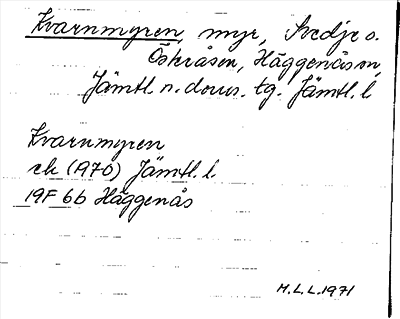 Kvarnmyren, myr, Svedje o.
Österåsen, Häggenås sn,
Jämtl. n. doms. tg. Jämtl. l
Kvarnmyren
ek (1970) Jämtl. l.
19F 6b Häggenås
M.L.L. 1971